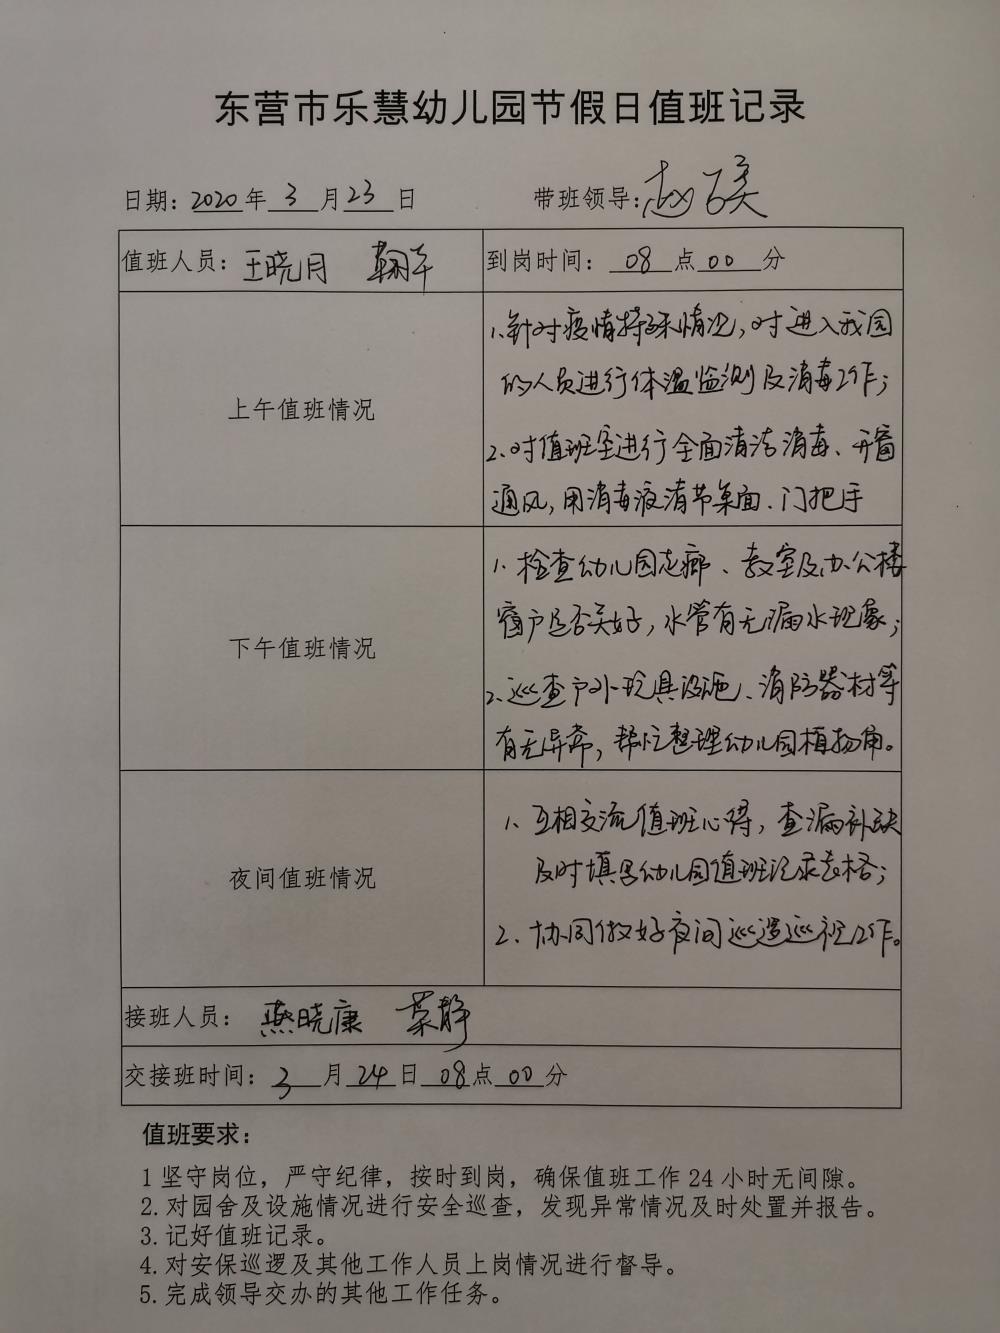 东营市乐慧幼儿园节假日值班记录
日期: 2020 年 3 月 23 日 带班领导: 赵
值班人员: 王晓月 到岗时间: 08 点 00 分
上午值班情况
1、针对疫情特殊情况,对进入我园
的人员进行体温监测及消毒工作;
2、对值班室进行全面清洁消毒、开窗
通风,用消毒液清节桌面、门把手
下午值班情况
1、检查幼儿园走廊、教室及办公楼
窗户是否关好,水管有无漏水现象;
2、巡查户外玩具设施、消防器材等
有无异常,帮忙整理幼儿园植物角。
夜间值班情况
1、互相交流值班心得,查漏补缺
及时填写幼儿园值班记录表格;
2、协同做好夜间巡逻巡视工作。
接班人员: 燕晓康 荣静
交接班时间: 3 月 24 日 08 点 00 分
值班要求:
1 坚守岗位,严守纪律,按时到岗,确保值班工作 24 小时无间隙。
2. 对园舍及设施情况进行安全巡查,发现异常情况及时处置并报告。
3. 记好值班记录。
4. 对安保巡逻及其他工作人员上岗情况进行督导。
5. 完成领导交办的其他工作任务。